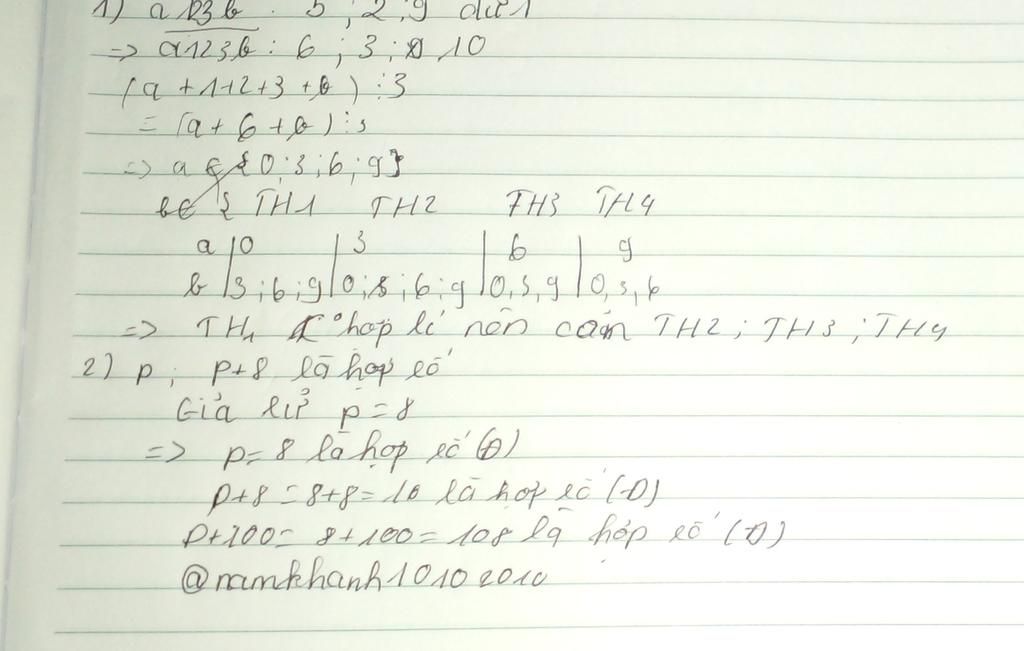 1) a123b : 5 ; 2 ; 9 dư 1
=> a123b : 6 ; 3 ; 10
(a + 1+2+3 + b) ⋮ 3
= (a + 6 + b) ⋮ 3
=> a ∈ {0 ; 3 ; 6 ; 9}
b∈ { TH1 TH2 TH3 TH4
a | 0 | 3 | 6 | 9
b | 3 ; 6 ; 9 | 0 ; 3 ; 6 ; 9 | 0, 3, 9 | 0, 3, 6
=> TH1 k° hợp lí nên còn TH2 ; TH3 ; TH4
2) p ; p+8 là hợp số
Giả sử p = 8
=> p = 8 là hợp số (Đ)
p+8 = 8+8 = 16 là hợp số (Đ)
p+100 = 8+100 = 108 là hợp số (Đ)
@namkhanh10102010